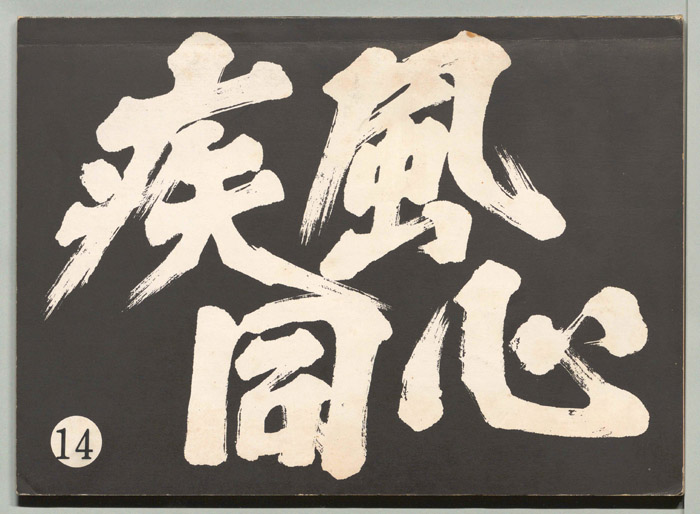 疾風
同心
14